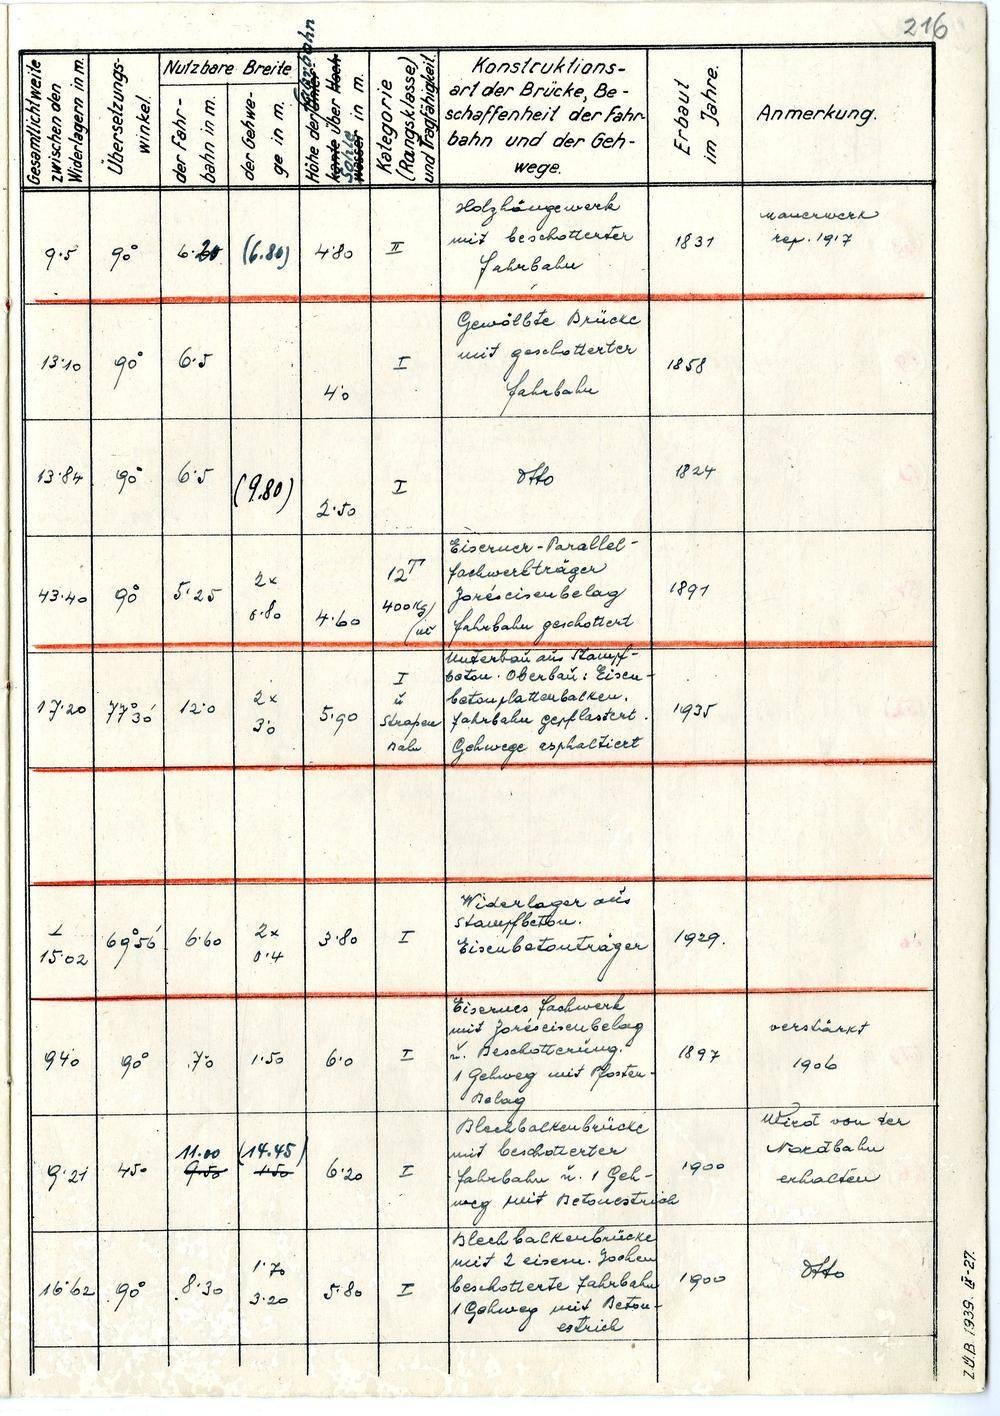 216
Gesamtlichtweite zwischen den Widerlagern in m.
Übersetzungs-winkel.
Nutzbare Breite
der Fahr-bahn in m.
der Gehwe-ge in m.
Höhe der Fahrbahn über Sohle in m.
Kategorie (Rangsklasse) und Tragfähigkeit
Konstruktions-
art der Brücke, Be-
schaffenheit der Fahr-
bahn und der Geh-
wege.
Erbaut im Jahre.
Anmerkung.
9·5 90° 6·20 (6.80) 4·80 II
Holzhängewerk
mit beschotterter
Fahrbahn
1831
Mauerwerk
rep. 1917
13·10 90° 6·5 4·0 I
Gewölbte Brücke
mit geschotterter
Fahrbahn
1858
13·84 90° 6·5 (9.80) 2·50 I
dtto
1824
43·40 90° 5·25
2x
0·80
4·60
12T
400Kg/m²
Eiserner-Parallel-
fachwerkträger
Zoréseisenbelag
Fahrbahn geschottert
1891
17·20 77°30' 12·0
2x
3·0
5·90
I
u
Strassen
bahn
Unterbau aus Stampf-
beton. Oberbau: Eisen-
betonplattenbalken.
Fahrbahn gepflastert.
Gehwege asphaltiert
1935
⊥
15·02 69°56' 6·60
2x
0·4
3·80 I
Widerlager aus
Stampfbeton.
Eisenbetonträger
1929.
9·40 90° 7·0 1·50 6·0 I
Eisernes Fachwerk
mit Zoréseisenbelag
u. Beschotterung.
1 Gehweg mit Pfosten-
Belag
1897
verstärkt
1906
9·21 45°
11.00 (14.45)
9·50 1·50
6·20 I
Blechbalkenbrücke
mit beschotterter
Fahrbahn u. 1 Geh-
weg mit Betonestrich
1900
Wird von der
Nordbahn
erhalten
16·62 90° 8·30
1·70
3·20
5·80 I
Blechbalkenbrücke
mit 2 eisern. Jochen
beschotterte Fahrbahn
1 Gehweg mit Beton-
estrich
1900
dtto
Z.Ü.B. 1939. II-27.